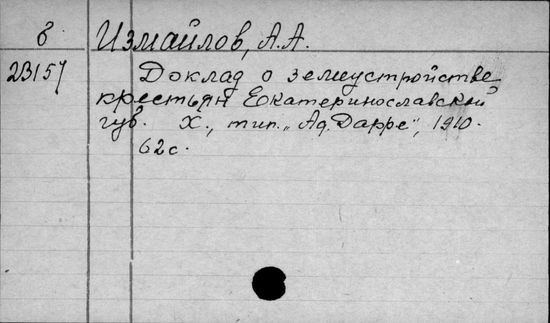 б Измайлов, А.А.
2В157 Доклад о землеустройстве
крестьян Екатеринославской
губ. Х., тип. „Ад. Дарре", 1910.
62с.